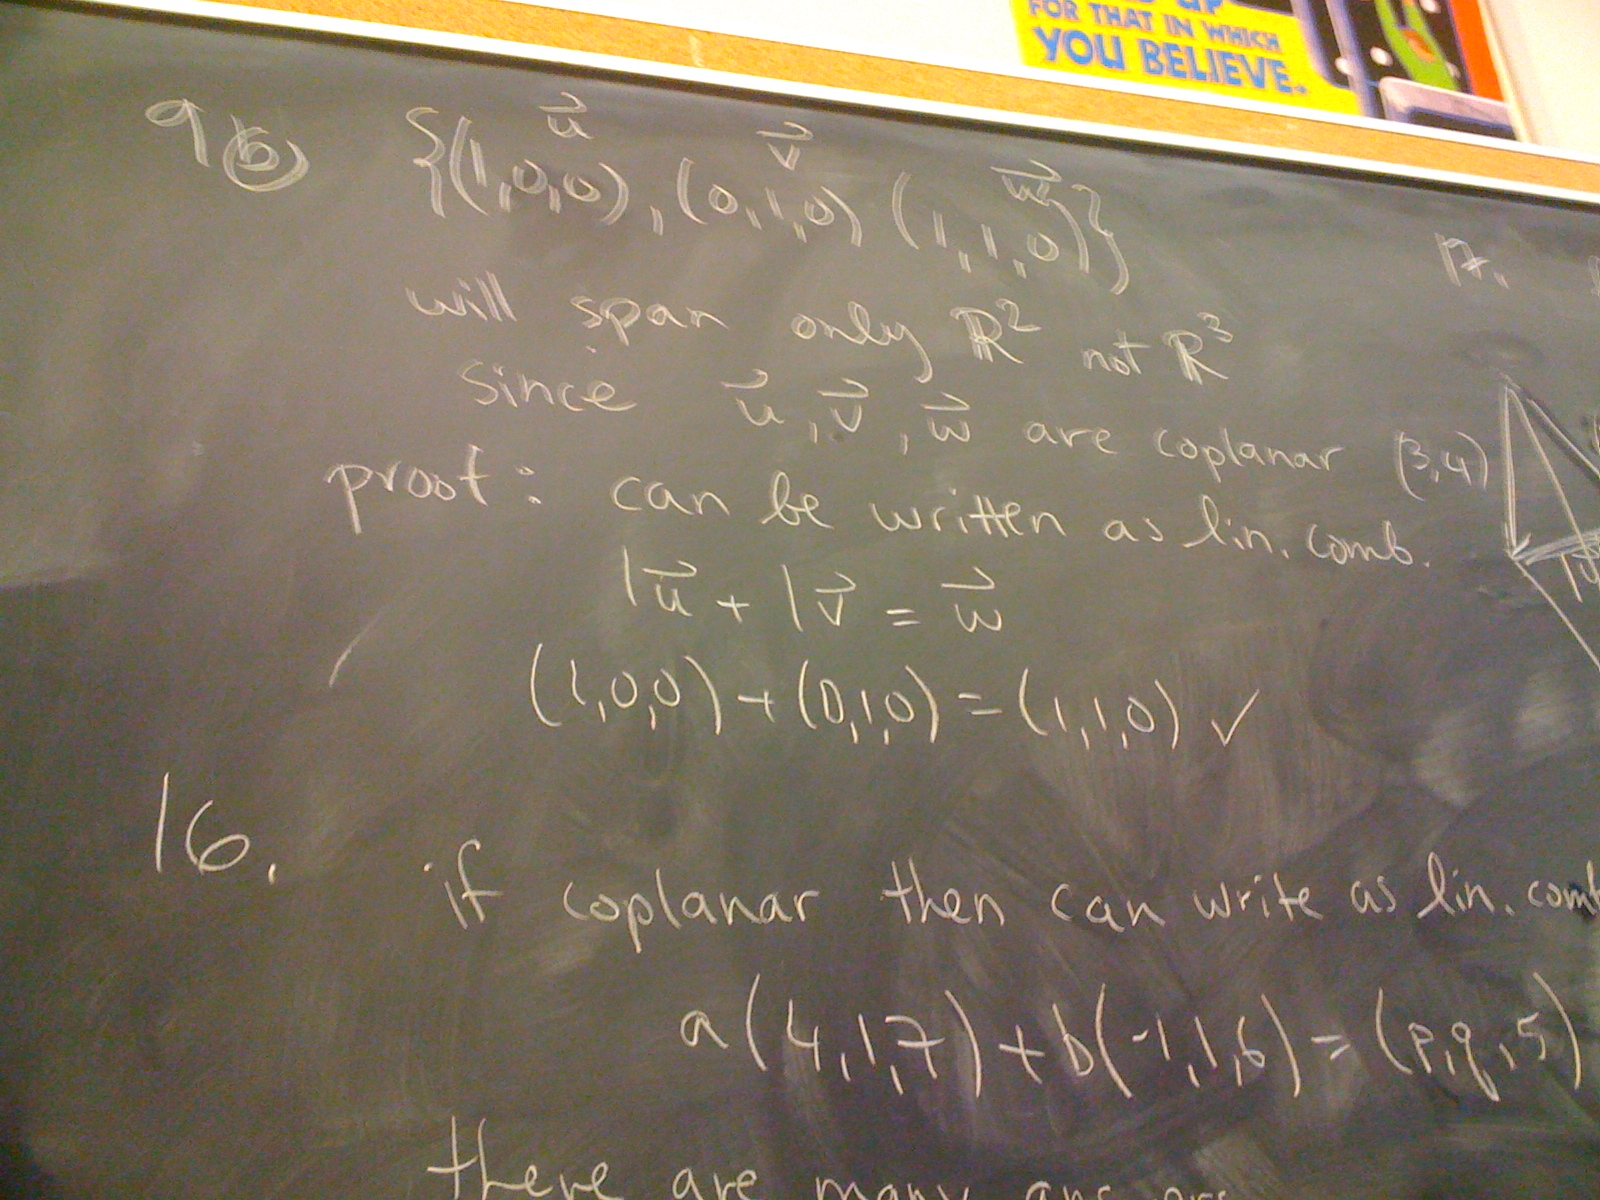 FOR THAT IN WHICH
YOU BELIEVE.
9 b
u⃗ v⃗ w⃗
{(1,0,0), (0,1,0) (1,1,0)}
will span only ℝ² not ℝ³
since u⃗, v⃗, w⃗ are coplanar (3,4)
proof: can be written as lin. comb.
1u⃗ + 1v⃗ = w⃗
(1,0,0) + (0,1,0) = (1,1,0) ✓
16.
if coplanar then can write as lin. comb
a(4,1,7) + b(-1,1,6) = (p,q,5)
there are many
17.